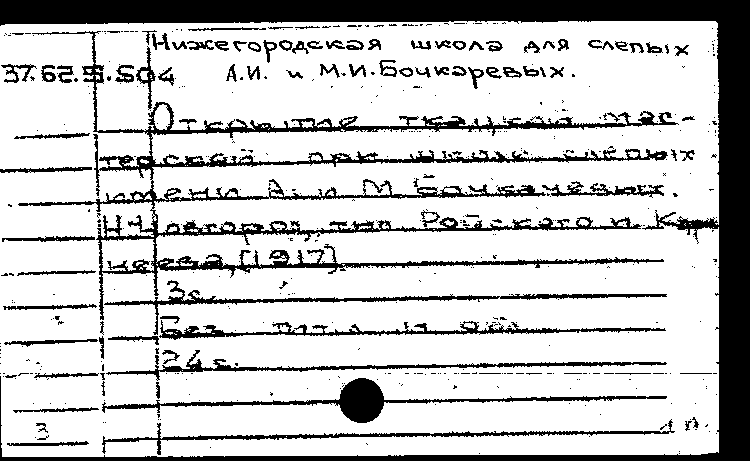 Нижегородская школа для слепых
37.62.5.504 А.И. и М.И.Бочкаревых.
Открытие ткацкой мас-
терской при школе слепых
имени А. и М Бочкачевых.
Н-Новгород, тип Ройского и Кар
неева, [1917]
3с.
Без тит. л. и обл.
24 с.
3 1 п.